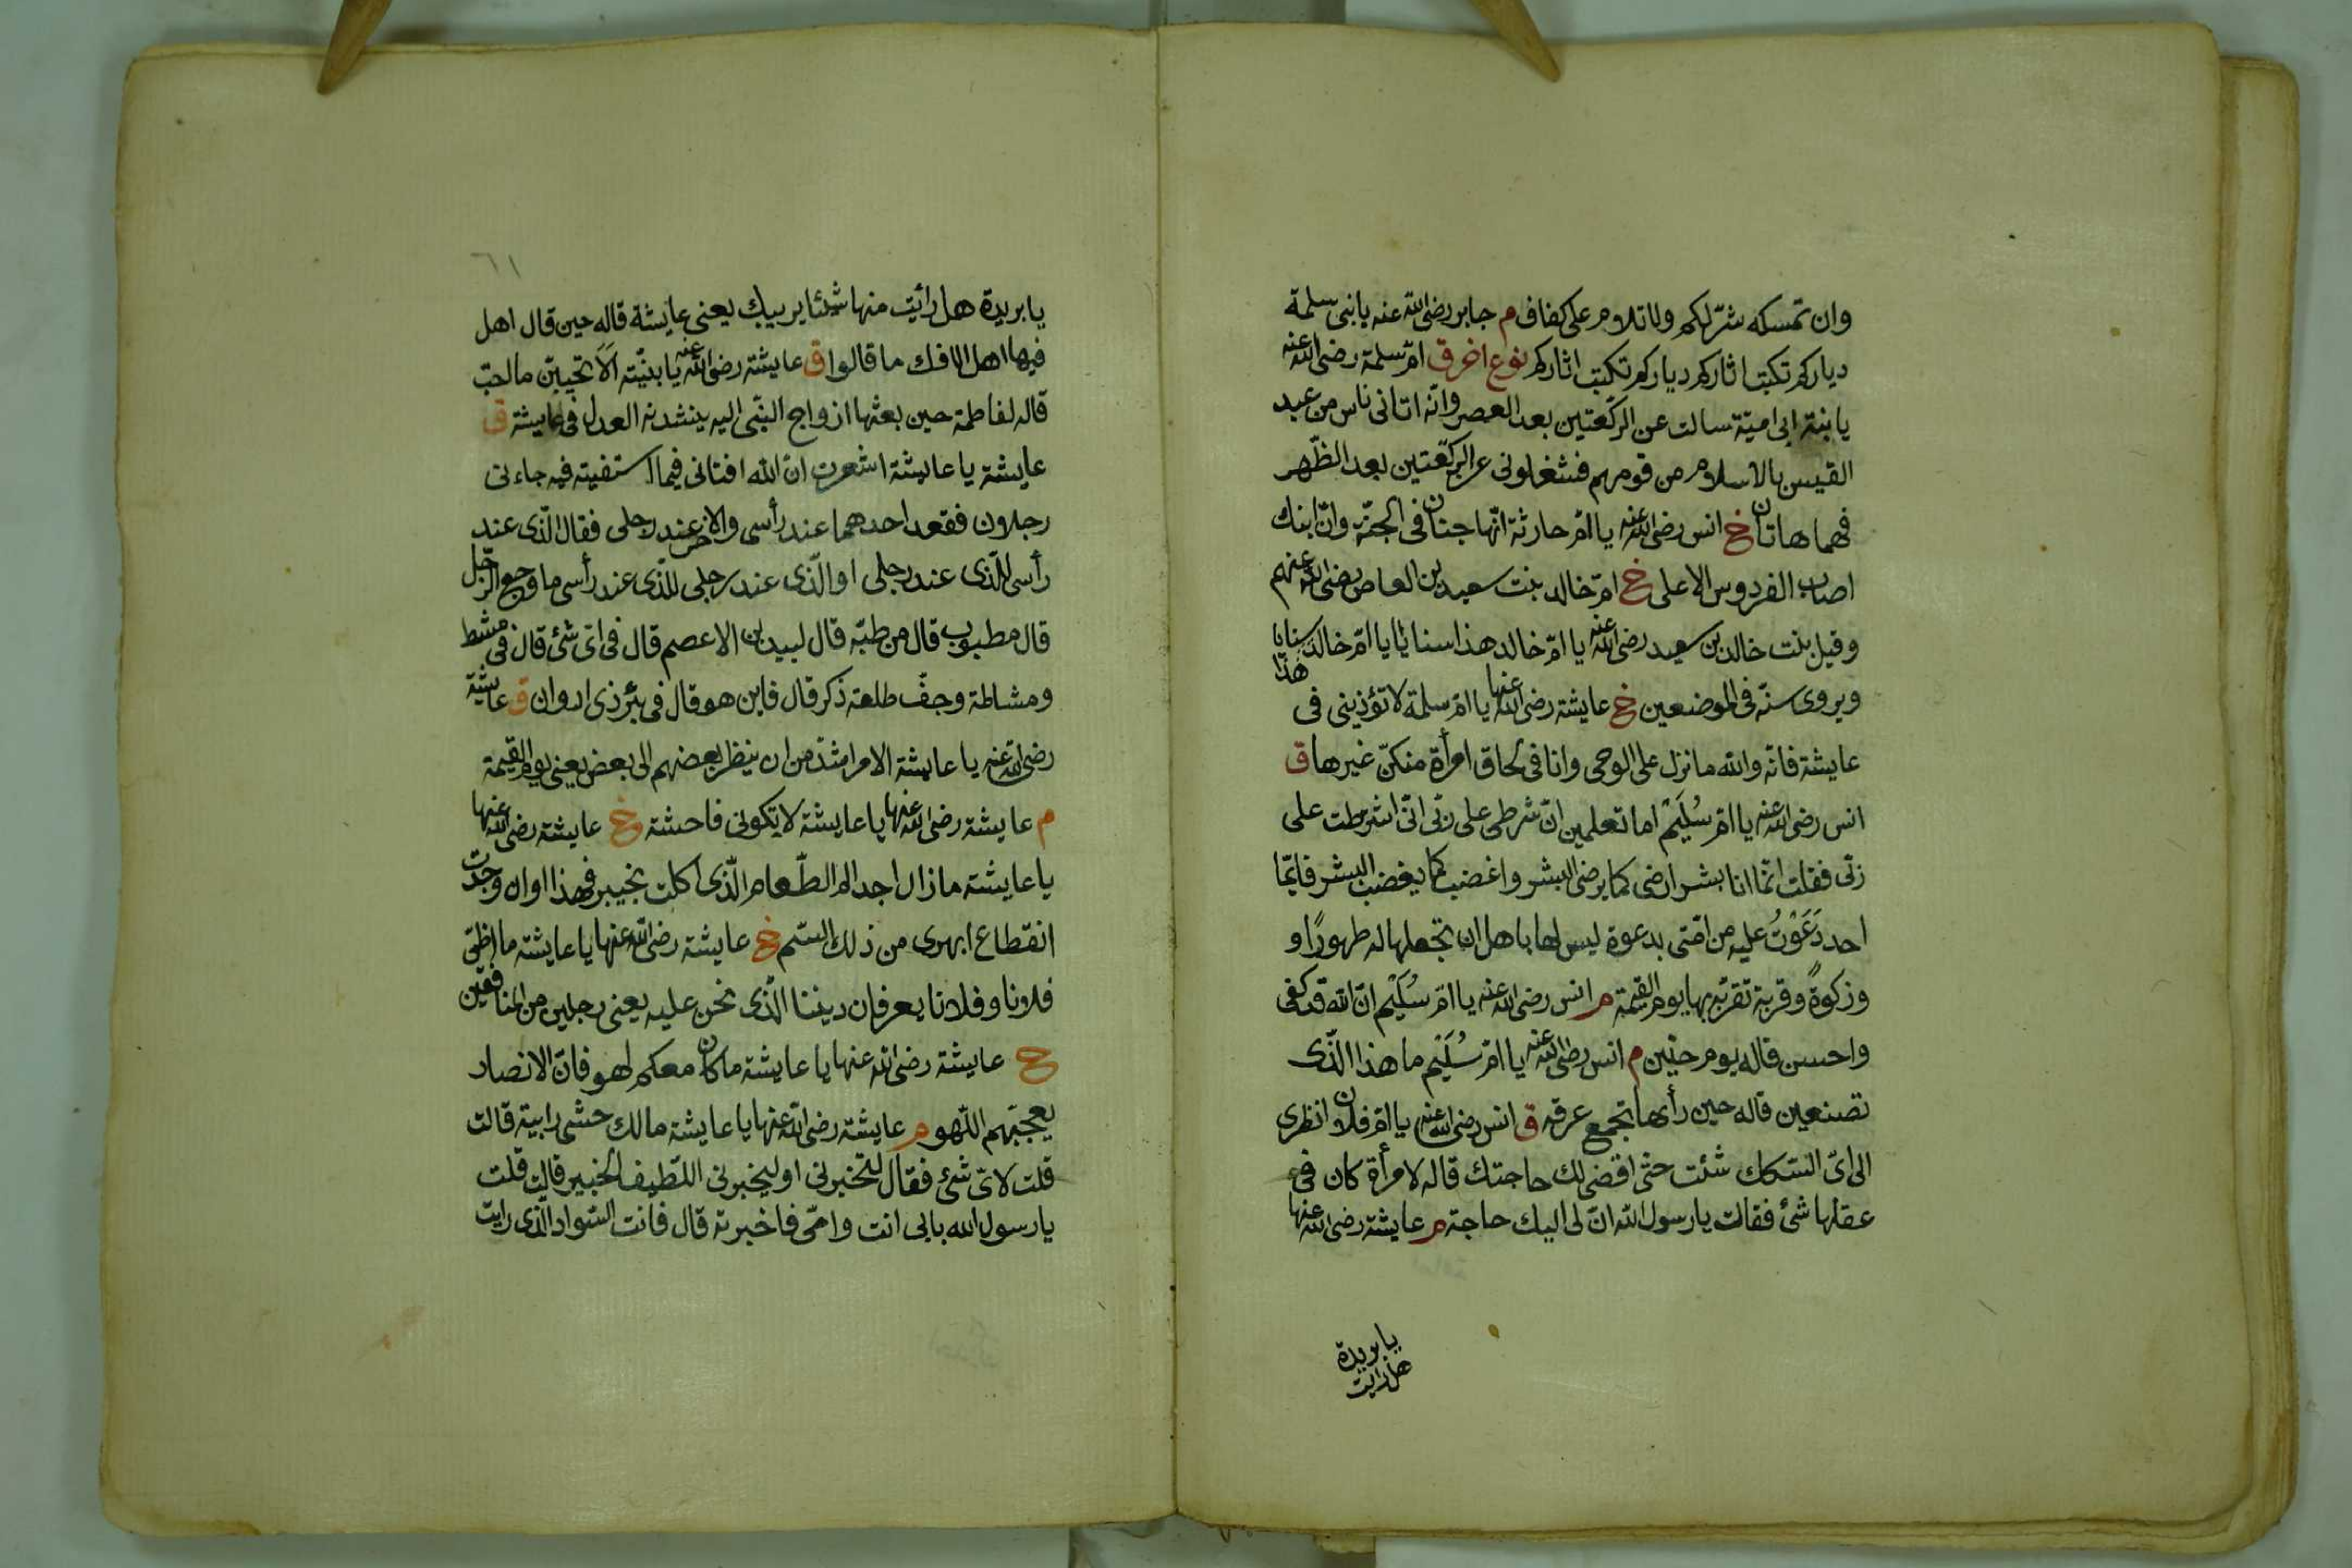 وان تمسكه شرّ لكم ولا تلام على كفاف م جابر رضى الله عنه يا بنى سلمة
دياركم تكتب اثاركم دياركم تكتب اثاركم نوع اخر ق امّ سلمة رضى الله عنه
يا بنة ابى اميّة سالت عن الركّعتين بعد العصر وانّه اتانى ناس من عبد
القيس بالاسلام من قومهم فشغلونى عن الركّعتين بعد الظّهر
فهما هاتان خ انس رضى الله عنه يا امّ حارثة انّها جنان فى الجنّة وانّ ابنك
اصاب الفردوس الاعلى خ امّ خالد بنت سعيد بن العاص رضى الله عنهم
وقيل بنت خالد بن سعيد رضى الله عنه يا امّ خالد هذا سنا يا امّ خالد سنا يا هذا
ويروى سنّه فى الموضعين خ عايشة رضى الله عنها يا امّ سلمة لا تؤذينى فى
عايشة فانّه والله ما نزل على الوحى وانا فى لحاق امرأة منكنّ غيرها ق
انس رضى الله عنه يا امّ سُلَيْم اما تعلمين انّ شرطى على ربّى انّى اشترطت على
ربّى فقلت انّما انا بشر ارضى كما يرضى البشر واغضب كما يغضب البشر فايّما
احد دَعَوْتُ عليه من امّتى بدعوة ليس لها باهل ان تجعلها له طهورًا و
وزكوةً وقربة تقرّبه بها يوم القيمة م انس رضى الله عنه يا امّ سُلَيْم انّ الله قد كفى
واحسن قاله يوم حنين م انس رضى الله عنه يا امّ سُلَيْم ما هذا الّذى
تصنعين قاله حين رأها تجمع عرقه ق انس رضى الله عنه يا امّ فلان انظرى
الى اىّ السّكك شئت حتى اقضى لك حاجتك قاله لامرأة كان فى
عقلها شئ فقالت يا رسول الله انّ لى اليك حاجة م عايشة رضى الله عنها
يا بريدة
هل رايت
٦١
يا بريدة هل رأيت منها شيئا يريبك يعنى عايشة قاله حين قال اهل
فيها اهل الافك ما قالوا ق عايشة رضى الله عنه يا بنيّته الا تحبيّن ما احبّ
قاله لفاطمة حين بعثها ازواج النبّى اليه ينشدنه العدل فى عايشة ق
عايشة يا عايشة اشعرت انّ الله افتانى فيما استفيته فيه جاءنى
رجلان فقعد احدهما عند رأسى والاخر عند رجلى فقال الّذى عند
رأسى للّذى عند رجلى او الّذى عند رجلى للّذى عند رأسى ما وجع الرّجل
قال مطبوب قال من طبّه قال لبيد بن الاعصم قال فى اىّ شئ قال فى مشط
ومشاطة وجفّ طلعة ذكر قال فاين هو قال فى بئر ذى اروان ق عايشة
رضى الله عنه يا عايشة الامر اشدّ من ان ينظر بعضهم الى بعض يعنى يوم القيمة
م عايشة رضى الله عنها يا عايشة لا تكونى فاحشة خ عايشة رضى الله عنها
يا عايشة ما زال اجد الم الطّعام الّذى اكلت بخيبر فهذا اوان وجدت
انقطاع ابهرى من ذلك السّم خ عايشة رضى الله عنها يا عايشة ما اظنّ
فلانا وفلانا يعرفان ديننا الّذى نحن عليه يعنى رجلين من المنافقين
خ عايشة رضى الله عنها يا عايشة ما كان معكم لهو فانّ الانصار
يعجبّهم اللّهو م عايشة رضى الله عنها يا عايشة مالك حشى رابية قالت
قلت لاىّ شئ فقال لتخبرنى او ليخبرنى اللّطيف الخبير قالت قلت
يا رسول الله بابى انت وامّى فاخبرته قال فانت السّواد الّذى رايت